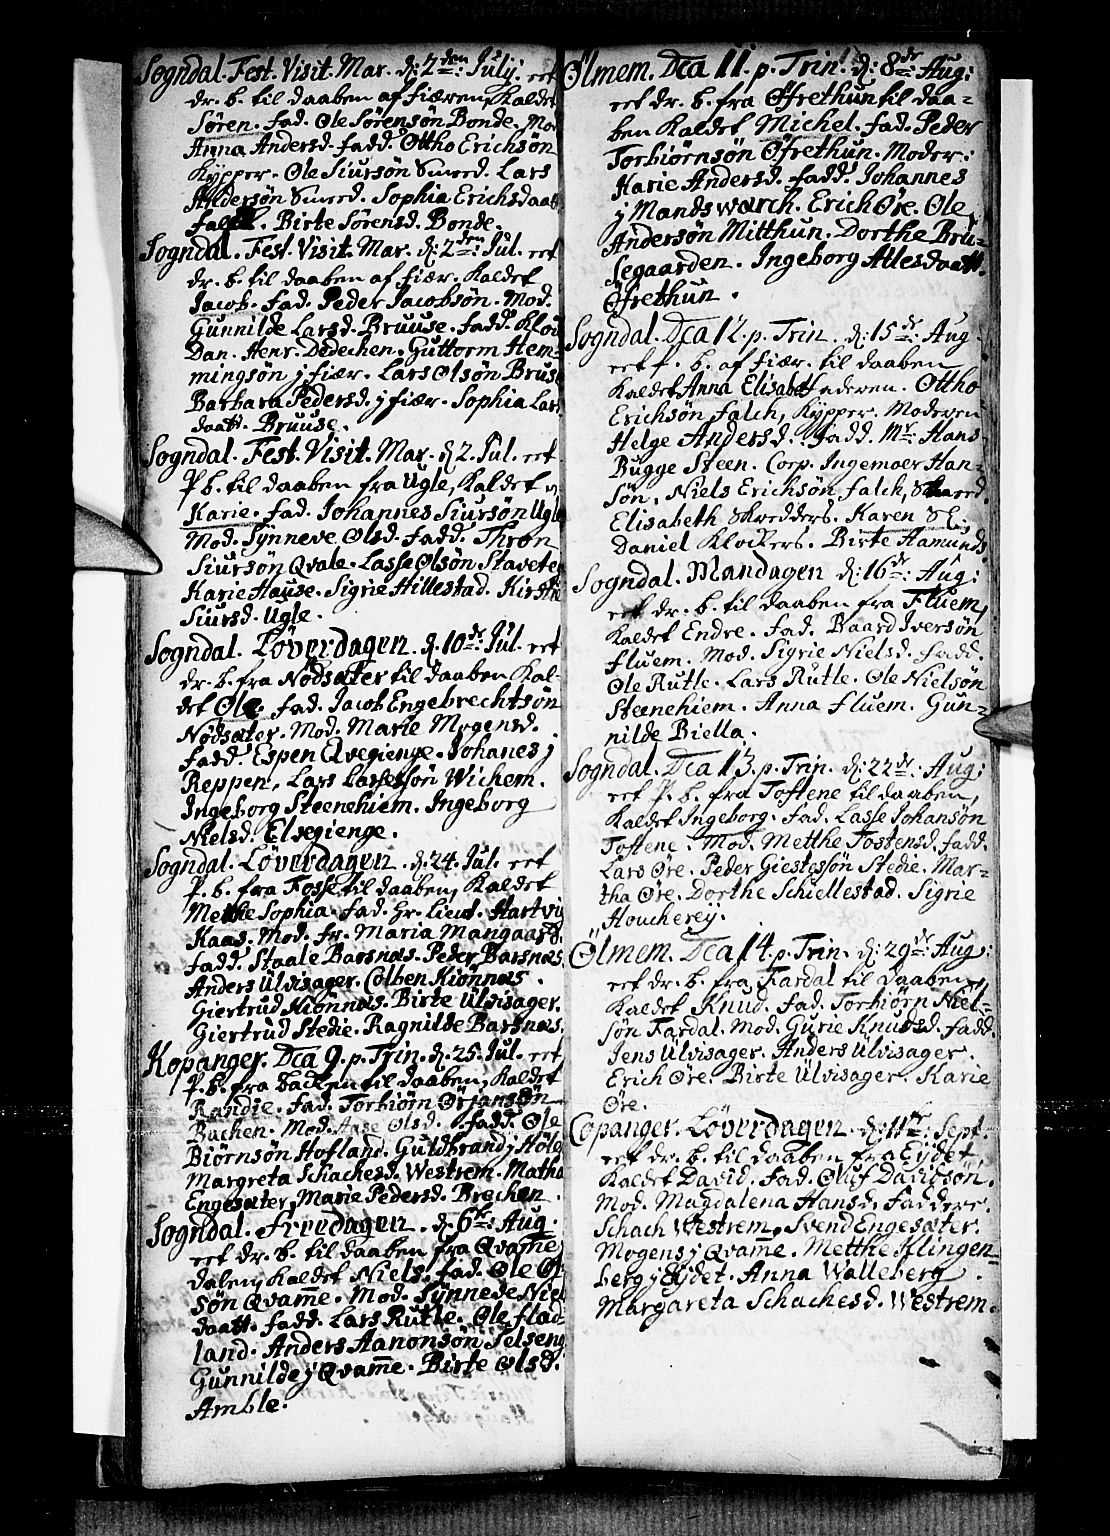 Sogndal. Fest. Visit. Mar. d: 2den: Julij. eet
dr. b. til daaben af fiæren, Kaldet
Sören. fad. Ole Sörensön Bonde. Mod
Anna Andersd. fadd. Ottho Erichsön
Kÿpper. Ole Siursön Smed. Lars
Andersön Smed. Sophia Erichsdaatt
Falch. Birte Sörensd. Bonde.
Sogndal. Fest. Visit. Mar. d: 2den: Jul. eet
dr. b. til daaben af fiær. Kaldet
Jacob. fad. Peder Jacobsön. Mod.
Gunnilde Larsd. Bruuse. fadd. Klou
Dan. Henr. Dedechen. Guttorm Hem-
mingsön j fiær. Lars Olsön Bruse
Barbara Pedersd. j fiær. Sophia Lars
daatt. Bruuse.
Sogndal. Fest. Visit. Mar. d. 2. Jul. eet
P. b. til daaben fra Ugle, Kaldet
Karie. fad. Johannes Siursön Ugle
Mod. Synneve Olsd. fadd. Thron
Siursön Qvale. Lasse Olsön Stavete
Karie Hause. Sigrie Hillestad. Kirsti
Siursd. Ugle.
Sogndal. Löverdagen. d. 10de: Jul. eet
dr. b. fra Nödsæter til daaben Kal-
det Ole. fad. Jacob Engebrechtsön
Nödsæter. Mod. Marie Mogensd.
fadd. Espen Elvegienge. Johanes j
Reppen. Lars Lassessön Wichem.
Ingeborg Steenehiem. Ingeborg
Nielsd. Elvegienge.
Sogndal. Löverdagen. d. 24. Jul. eet
P. b. fra Fosse til daaben, Kaldet
Metthe Sophia. fad. Hr. Lieut. Hartvig
Kaas. Mod. fr. Maria Mangaard.
fadd. Staale Barsnæs. Peder Barsnæs.
Anders Ulvisager. Colben Kiönnas.
Giertrud Kiönnas. Birte Ulvisager.
Giertrud Stedie. Ragnilde Barsnæs.
Kopanger. Dca 9. p. Trin. d. 25. Jul. eet
P. b. fra Bachen til daaben, Kaldet
Randie. fad. Torbiörn Örjansön
Bachen. Mod. Aase Olsd. fadd. Ole
Biörnsön Hofland. Guldbrand j Höle
Margreta Schachesd. Westrem. Matha
Engesæter, Marie Pedersd. Brechen.
Sogndal. Fredagen. d. 6te: Aug.
eet dr. b. til daaben fra Qvam̅e
dalen, Kaldet Niels. fad. Ole Ol
sön Qvam̅e. Mod. Synnede Niel
daatt. fadd. Lars Rutle. Ole flad-
land. Anders Aanonsön Selseng
Gunnilde j Qvam̅e. Birte Olsd.
Amble.
Ölmem. Dca 11. p. Trin. d: 8de: Aug:
eet dr. b. fra Öfrethun til daa-
ben Kaldet Michel. fad. Peder
Torbiörnsön Öfrethun. Moder:
Karie Andersd. fadd. Johannes
j Mandswarch. Erich Öre. Ole
Andersön Mitthun. Dorthe Bru-
segaarden. Ingeborg Atlesdaatt.
Öfrethun.
Sogndal. Dca 12. p. Trin. d: 15de: Aug.
eet P. b. af fiær. til daaben
Kaldet Anna Elisabet. Ottho
Erichsön falch, Kÿpper. Moderen
Helge Andersd. fadd. Mr: Hans
Bugge Steen. Corp. Ingemoer Han-
sön. Niels Erichsön falch, Skræd.
Elisabeth Skredders. Karen Sl.
Daniel Klockers. Birte Aamunds
Sogndal. Mandagen d: 16de: Aug:
eet dr. b. til daaben fra Fluem,
Kaldet Endre. fad. Baard Iversön
Fluem. Mod. Sigrie Nielsd. fadd.
Ole Rutle. Lars Rutle. Ole Nielsön
Steenehiem. Anna Fluem. Gun-
nilde Biella.
Sogndal. Dca 13. p. Trin. d: 22de: Aug:
eet P. b. fra Toftene til daaben,
Kaldet Ingeborg. fad. Lasse Johansön
Toftene. Mod. Metthe Tostensd. fadd.
Lars Öre. Peder Giestessön Stedie. Mar-
tha Öre. Dorthe Schiellestad. Sigrie
Houchereÿ.
Ölmem. Dca 14. p. Trin. d: 29de: Aug:
eet dr. b. fra Fardal til daaben
Kaldet Knud. fad. Torbiörn Niel-
sön Fardal. Mod. Gurie Knudsd. fadd.
Jens Ulvisager. Anders Ulvisager.
Erich Öre. Birte Ulvisager. Karie
Öre.
Copanger. Löverdagen d: 11te: Sept.
eet dr. b. til daaben fra Eÿdet,
Kaldet David. fad. Oluf Davidsön.
Mod. Magdalena Hansd. Faddere.
Schach Westrem, Svend Engesæter.
Mogens j Qvam̅e. Metthe Klingen
berg j Eÿdet. Anna Walleberg.
Margareta Schachesd. Westrem.